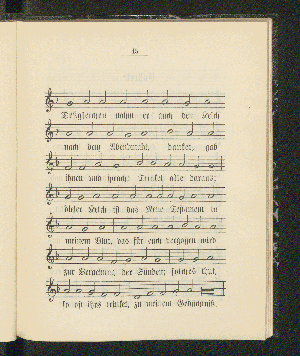 15
Deßgleichen nahm er auch den Kelch
nach dem Abendmahl, danket, gab
ihnen und sprach: Trinket alle daraus;
dieser Kelch ist das Neue Testament in
meinem Blut, das für euch vergossen wird
zur Vergebung der Sünden; solches thut,
so oft ihrs trinket, zu meinem Gedächtniß.